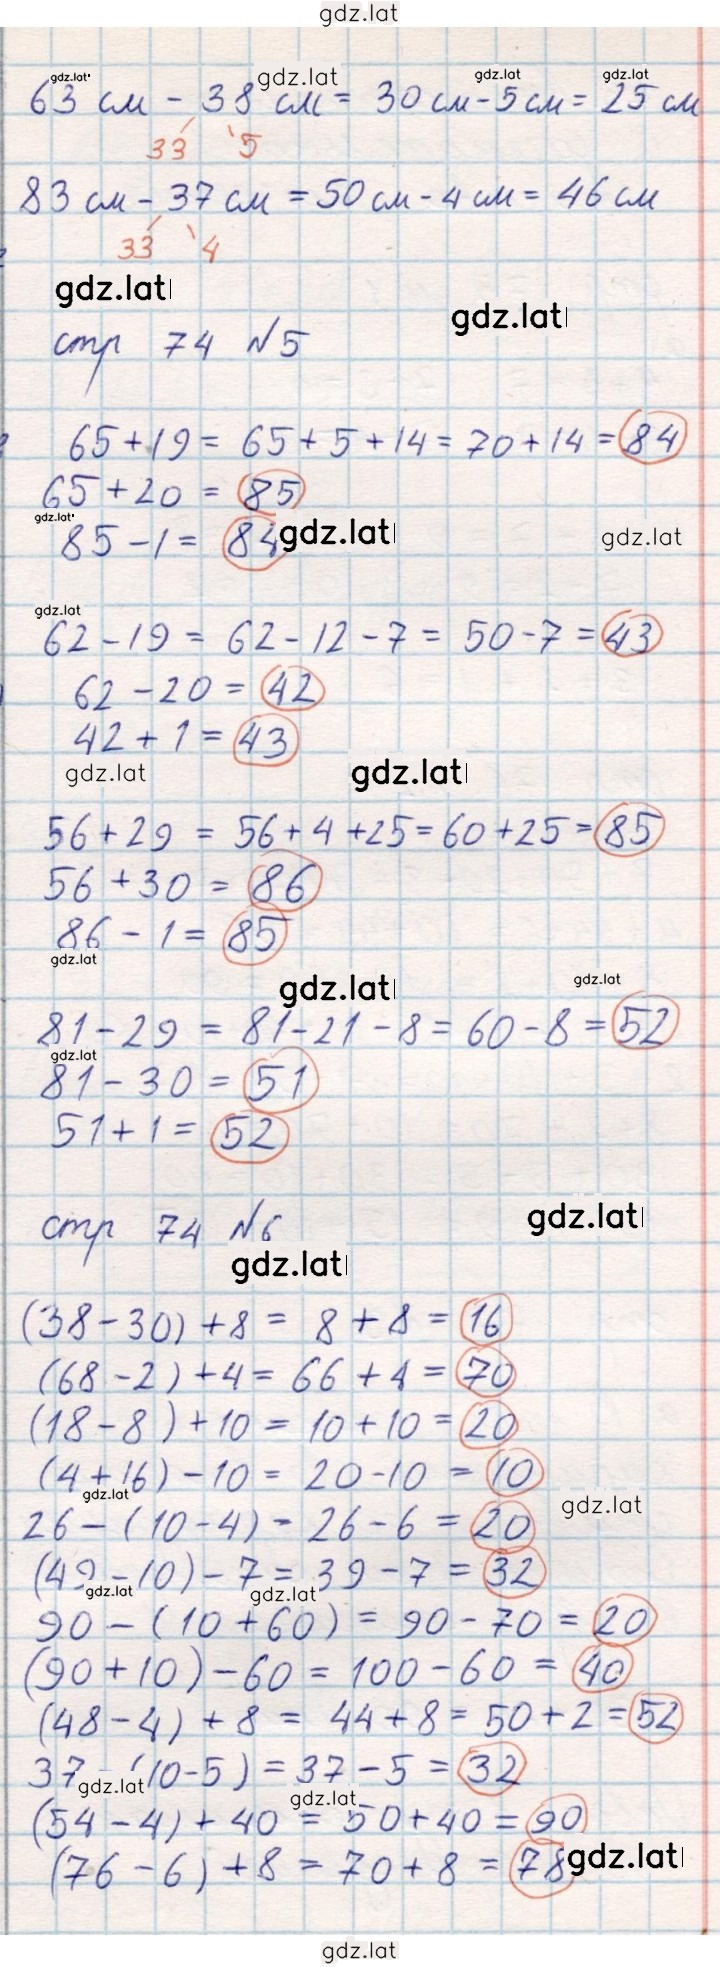 gdz.lat
gdz.lat gdz.lat gdz.lat gdz.lat
63 см - 38 см = 30 см - 5 см = 25 см
33 5
83 см - 37 см = 50 см - 4 см = 46 см
33 4
gdz.lat gdz.lat
стр 74 №5
65 + 19 = 65 + 5 + 14 = 70 + 14 = 84
65 + 20 = 85
gdz.lat
85 - 1 = 84 gdz.lat gdz.lat
gdz.lat
62 - 19 = 62 - 12 - 7 = 50 - 7 = 43
62 - 20 = 42
42 + 1 = 43
gdz.lat gdz.lat
56 + 29 = 56 + 4 + 25 = 60 + 25 = 85
56 + 30 = 86
86 - 1 = 85
gdz.lat gdz.lat gdz.lat
81 - 29 = 81 - 21 - 8 = 60 - 8 = 52
gdz.lat
81 - 30 = 51
51 + 1 = 52
gdz.lat
стр 74 №6
gdz.lat
(38 - 30) + 8 = 8 + 8 = 16
(68 - 2) + 4 = 66 + 4 = 70
(18 - 8) + 10 = 10 + 10 = 20
(4 + 16) - 10 = 20 - 10 = 10
gdz.lat gdz.lat
26 - (10 - 4) = 26 - 6 = 20
(49 - 10) - 7 = 39 - 7 = 32
gdz.lat gdz.lat
90 - (10 + 60) = 90 - 70 = 20
(90 + 10) - 60 = 100 - 60 = 40
(48 - 4) + 8 = 44 + 8 = 50 + 2 = 52
37 - (10 - 5) = 37 - 5 = 32
gdz.lat gdz.lat
(54 - 4) + 40 = 50 + 40 = 90
(76 - 6) + 8 = 70 + 8 = 78 gdz.lat
gdz.lat